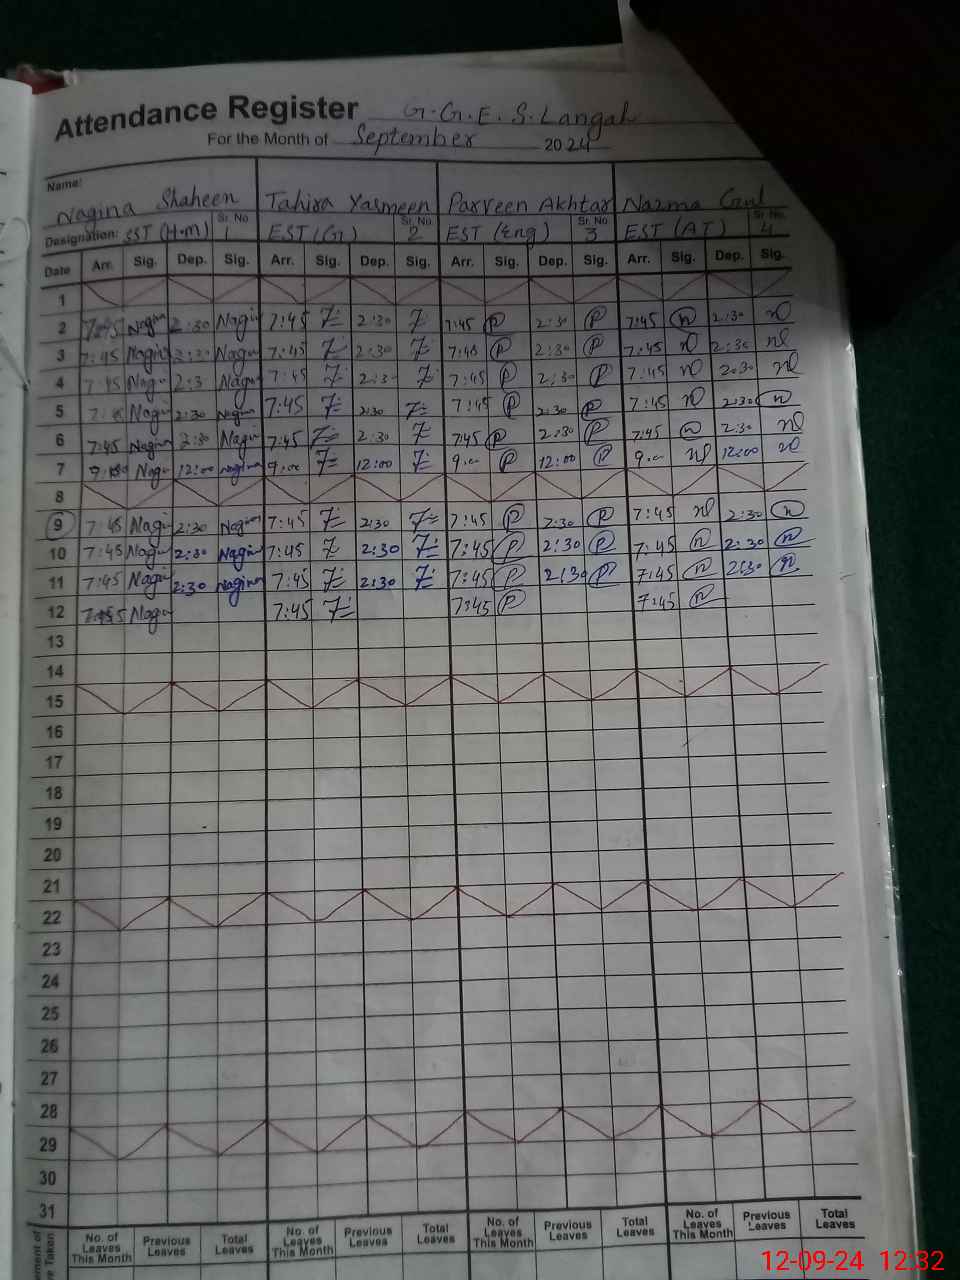 Attendance Register G.G.E.S. Langah
For the Month of September 2024
Name:
Nagina Shaheen Tahira Yasmeen Parveen Akhtar Nazma Gul
Designation: SST (H.M) Sr. No 1 EST (G) Sr. No 2 EST (Eng) Sr. No 3 EST (AT) Sr. No. 4
Date Arr. Sig. Dep. Sig. Arr. Sig. Dep. Sig. Arr. Sig. Dep. Sig. Arr. Sig. Dep. Sig.
1
2 7:45 Nagin 2:30 Nagin 7:45 2:30 7:45 P 2:30 P 7:45 n 2:30
3 7:45 Nagin 2:30 Nagin 7:45 2:30 7:45 P 2:30 P 7:45 2:30
4 7:45 Nagi 2:3 Nagin 7:45 2:30 7:45 P 2:30 P 7:45 2:30
5 7:45 Nagin 2:30 Nagin 7:45 2:30 7:45 P 2:30 P 7:45 2:30 n
6 7:45 Nagin 2:30 Nagin 7:45 2:30 7:45 P 2:30 P 7:45 n 2:30
7 9:00 Nagi 12:00 nagina 9:00 12:00 9:00 P 12:00 P 9:00 12:00
8
9 7:45 Nagin 2:30 Nagin 7:45 2:30 7:45 P 2:30 P 7:45 2:30 n
10 7:45 Nagin 2:30 Nagin 7:45 2:30 7:45 P 2:30 P 7:45 n 2:30 n
11 7:45 Nagin 2:30 nagina 7:45 2:30 7:45 P 2:30 P 7:45 n 2:30 n
12 7:45 Nagin 7:45 7:45 P 7:45 n
13
14
15
16
17
18
19
20
21
22
23
24
25
26
27
28
29
30
31
No. of Leaves This Month Previous Leaves Total Leaves No. of Leaves This Month Previous Leaves Total Leaves No. of Leaves This Month Previous Leaves Total Leaves No. of Leaves This Month Previous Leaves Total Leaves
12-09-24 12:32